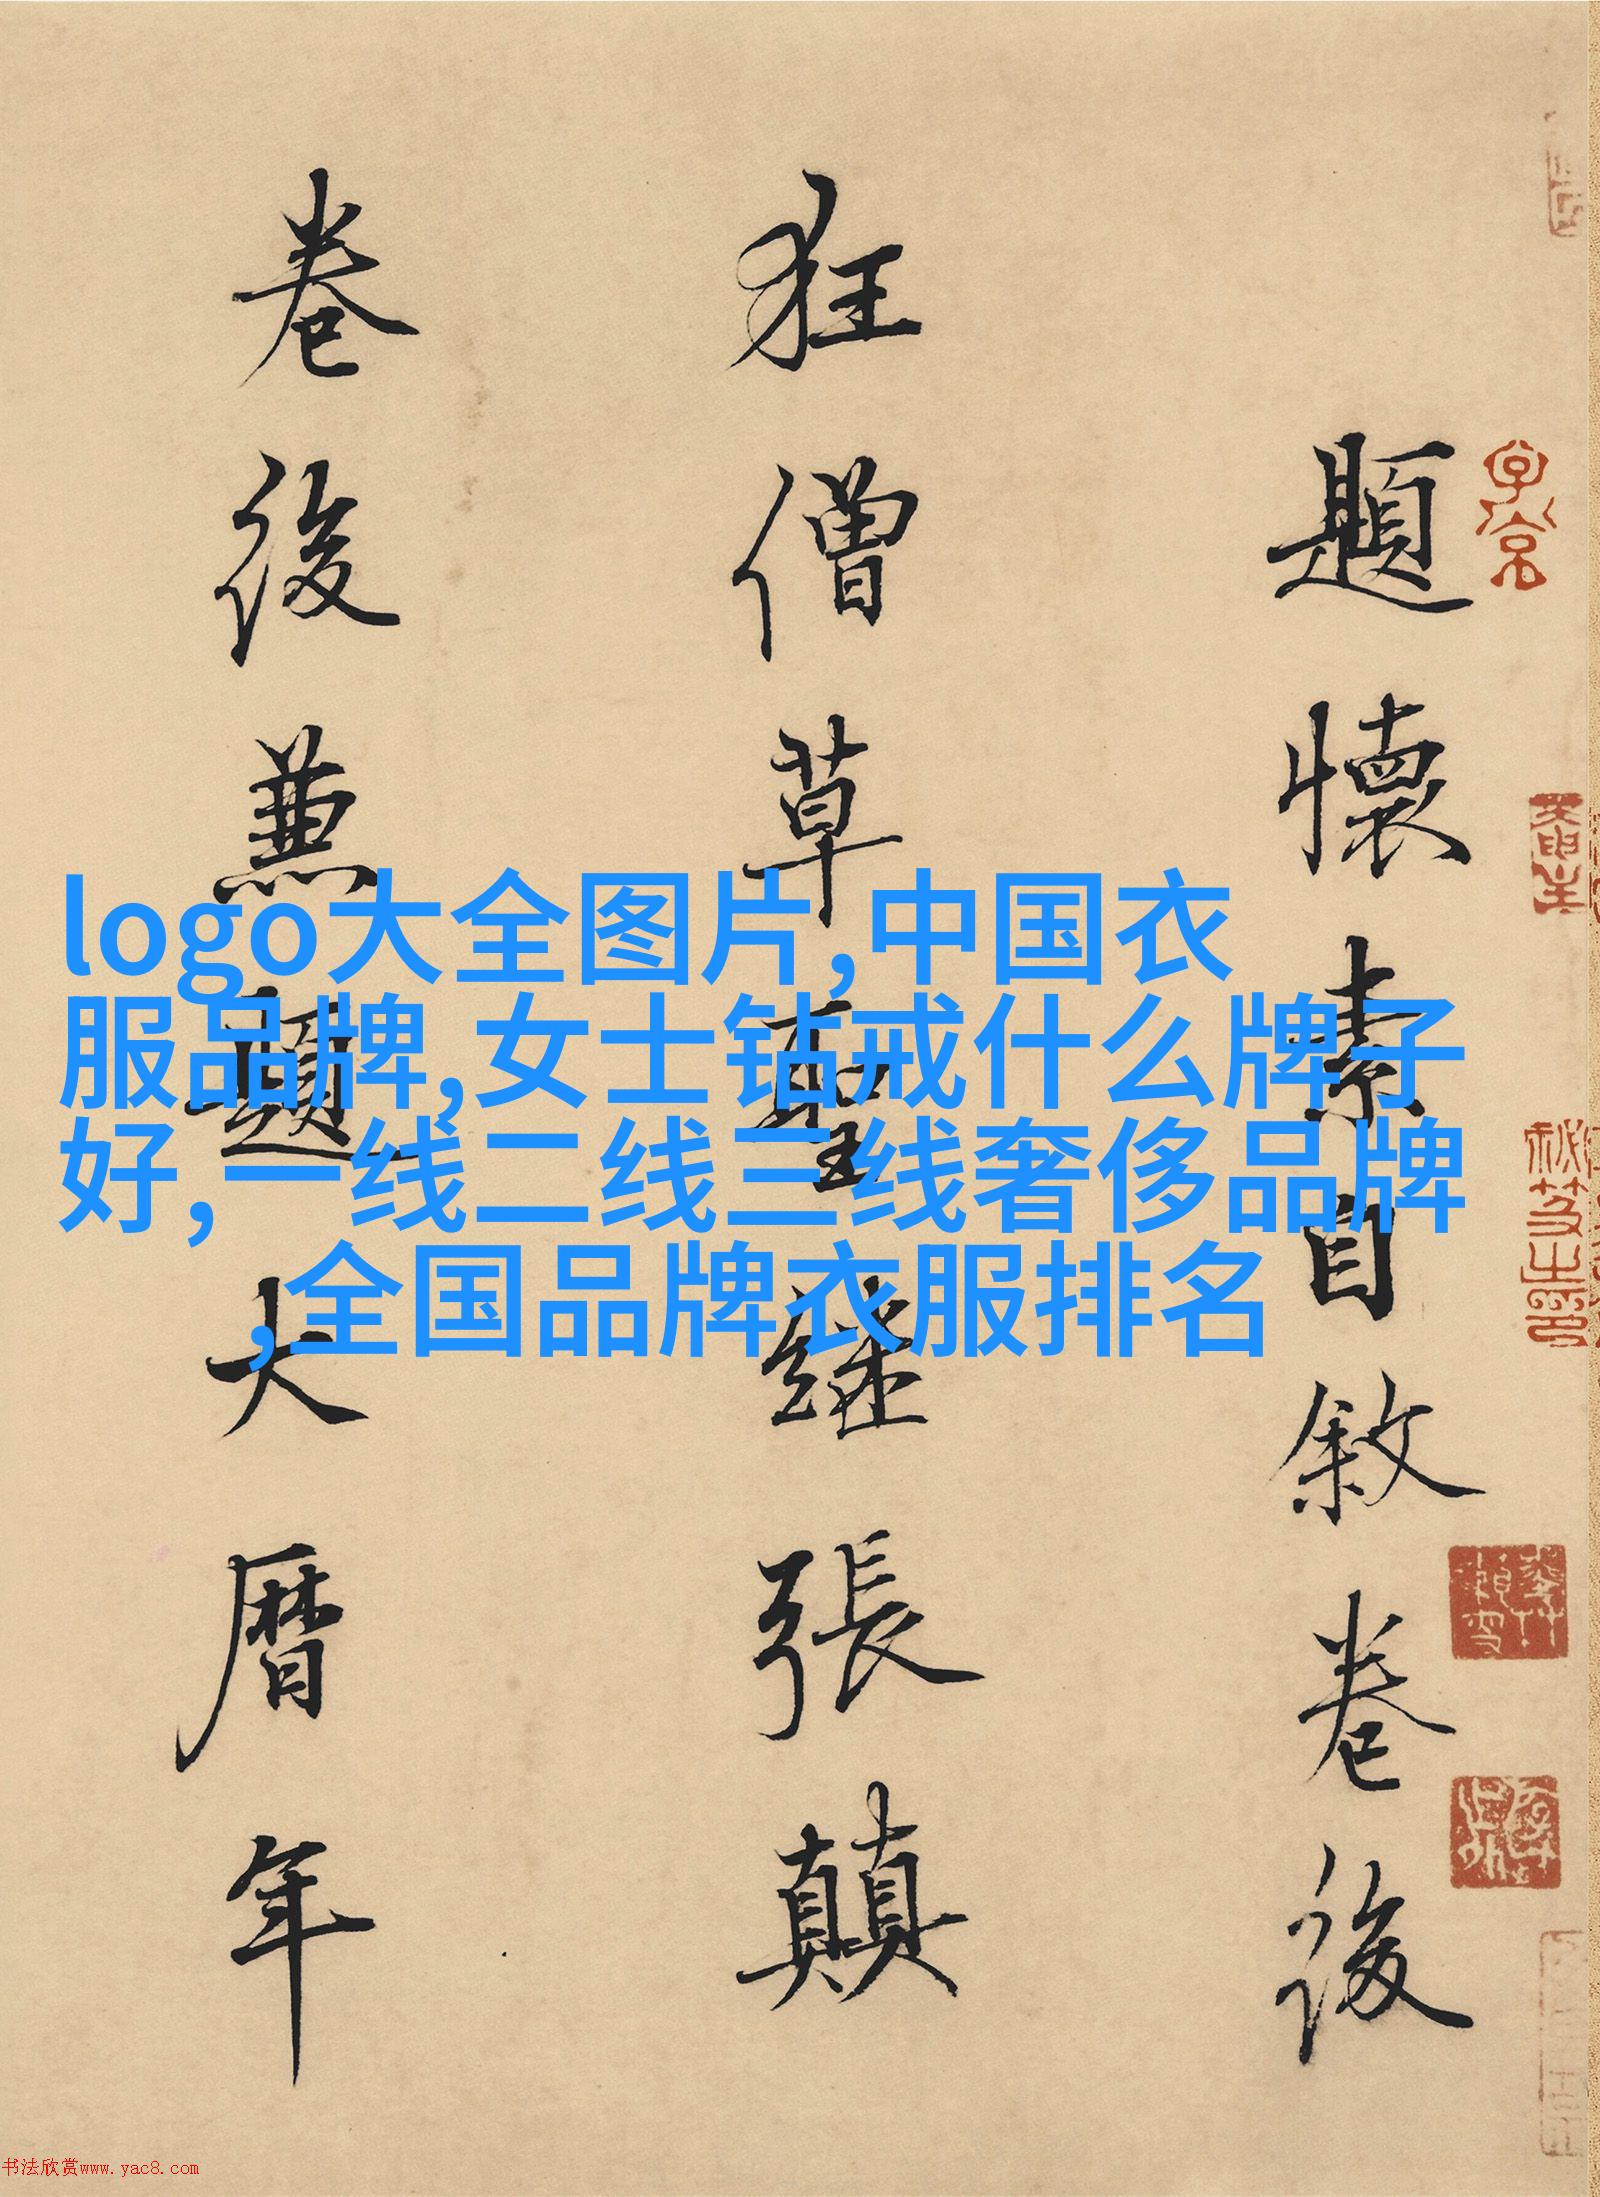 題懷素自敘卷後
狂僧草聖繼張顛
卷後兼題大曆年
logo大全图片,中国衣
服品牌,女士钻戒什么牌子
好,一线二线三线奢侈品牌
,全国品牌衣服排名
书法欣赏www.yac8.com